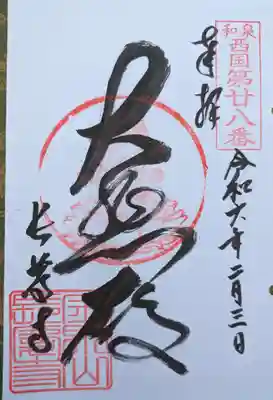 和泉
西国第廿八番
奉拝
令和六年二月三日
大悲殿
長芳寺